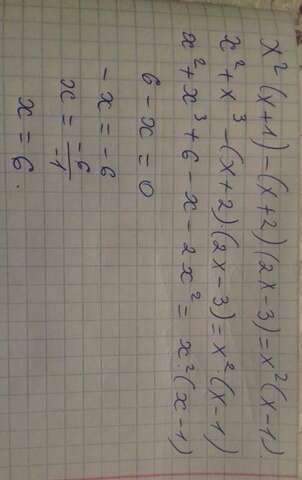 x² (x+1) - (x+2) (2x-3) = x² (x-1)
x² + x³ - (x+2)·(2x-3) = x²·(x-1)
x² + x³ + 6 - x - 2x² = x²·(x-1)
6 - x = 0
-x = -6
x = -6/-1
x = 6.